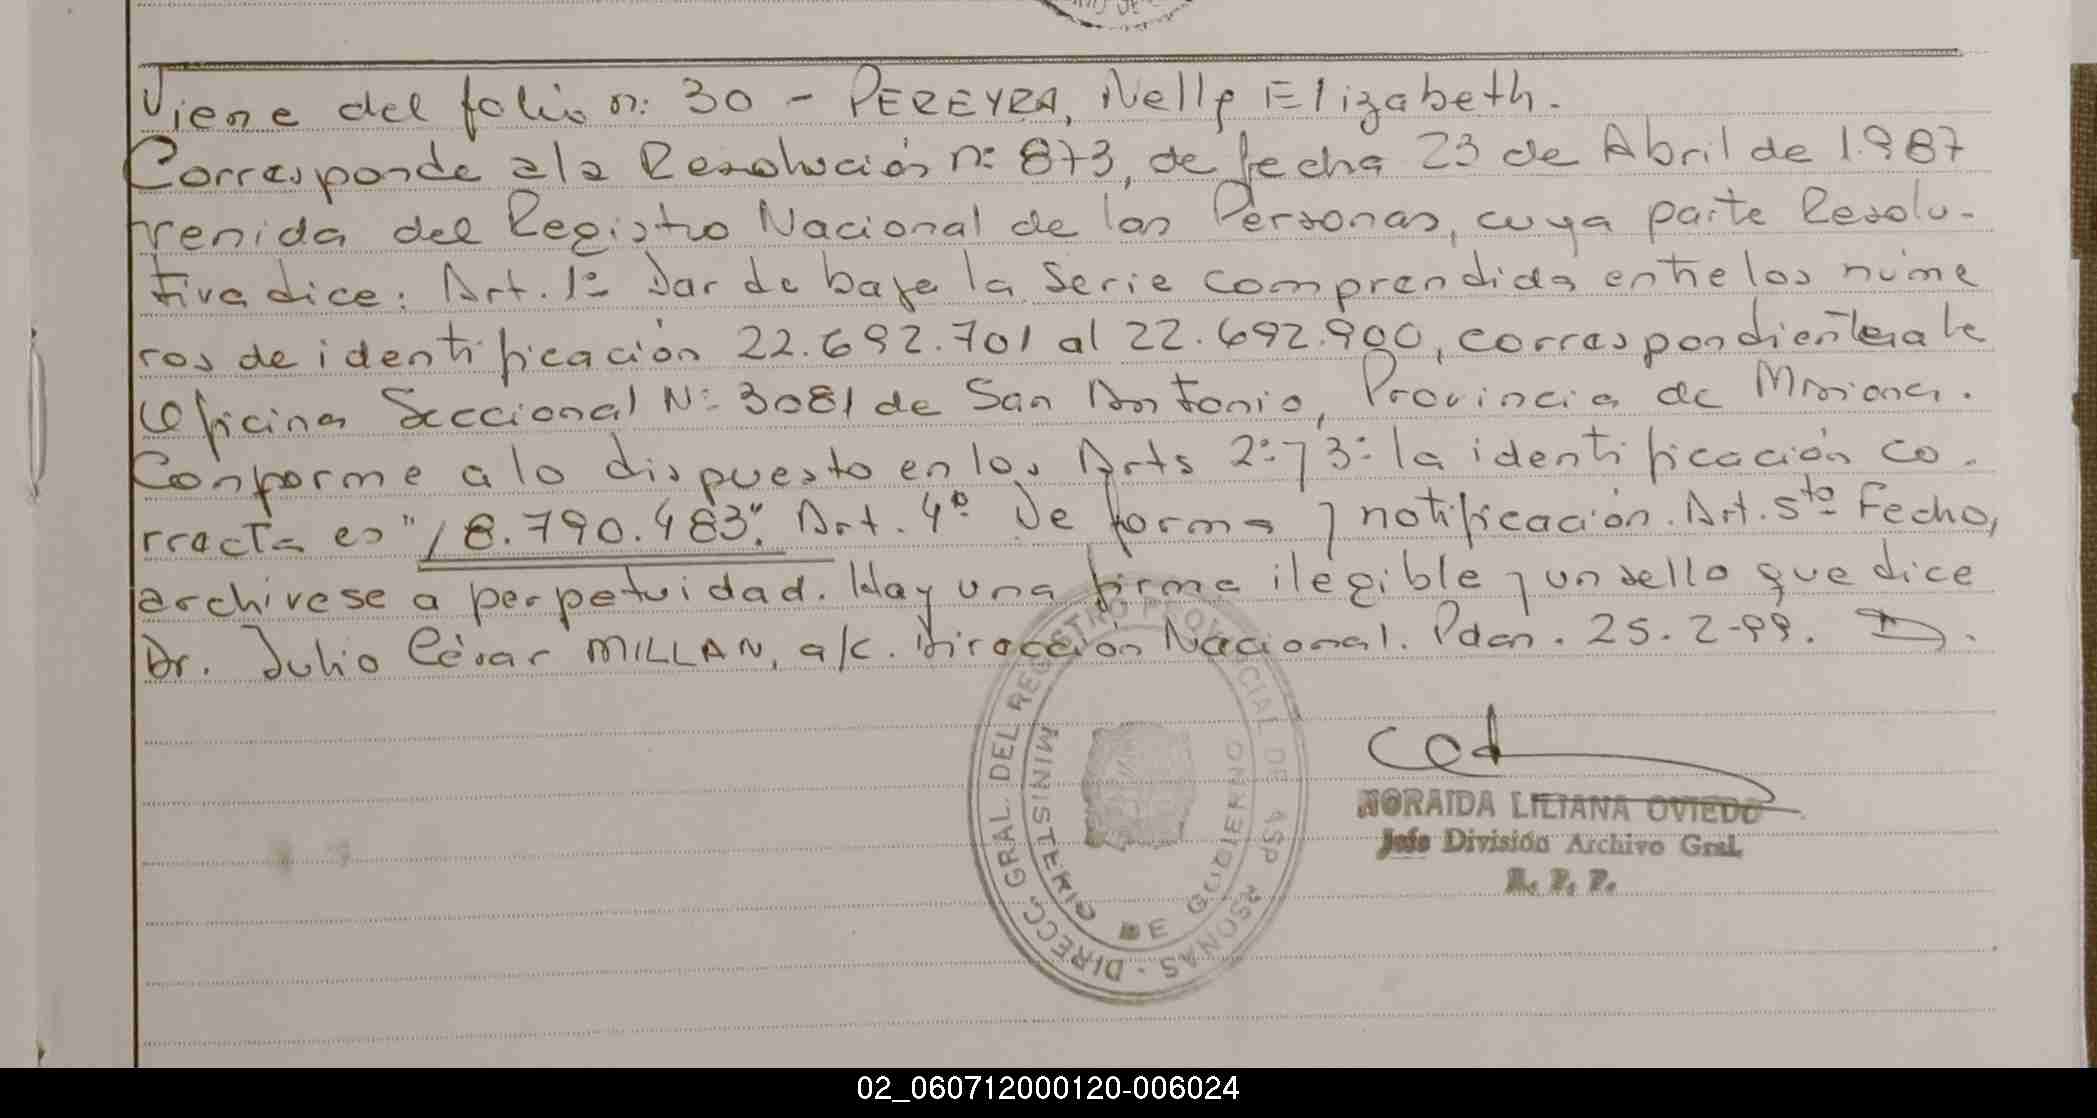 Viene del folio n: 30 - PEREYRA, Nelly Elizabeth.
Corresponde a la Resolución n: 873, de fecha 23 de Abril de 1.987
venida del Registro Nacional de las Personas, cuya parte Resolu-
tiva dice: Art. 1º Dar de baja la serie comprendida entre los núme
ros de identificación 22.692.701 al 22.692.900, correspondiente a la
Oficina Seccional Nº 3081 de San Antonio, Provincia de Misiones.
Conforme a lo dispuesto en los Arts 2º y 3º la identificación co-
rrecta es "18.790.483". Art. 4º De forma y notificación. Art. 5to Fecho,
archívese a perpetuidad. Hay una firma ilegible y un sello que dice
Dr. Julio César MILLAN, a/c. Dirección Nacional. Pdas. 25-2-99.
DIRECC. GRAL. DEL REGISTRO PROVINCIAL DE LAS PERSONAS
MINISTERIO DE GOBIERNO
NORAIDA LILIANA OVIEDO
Jefe División Archivo Gral.
R. P. P.
02_060712000120-006024